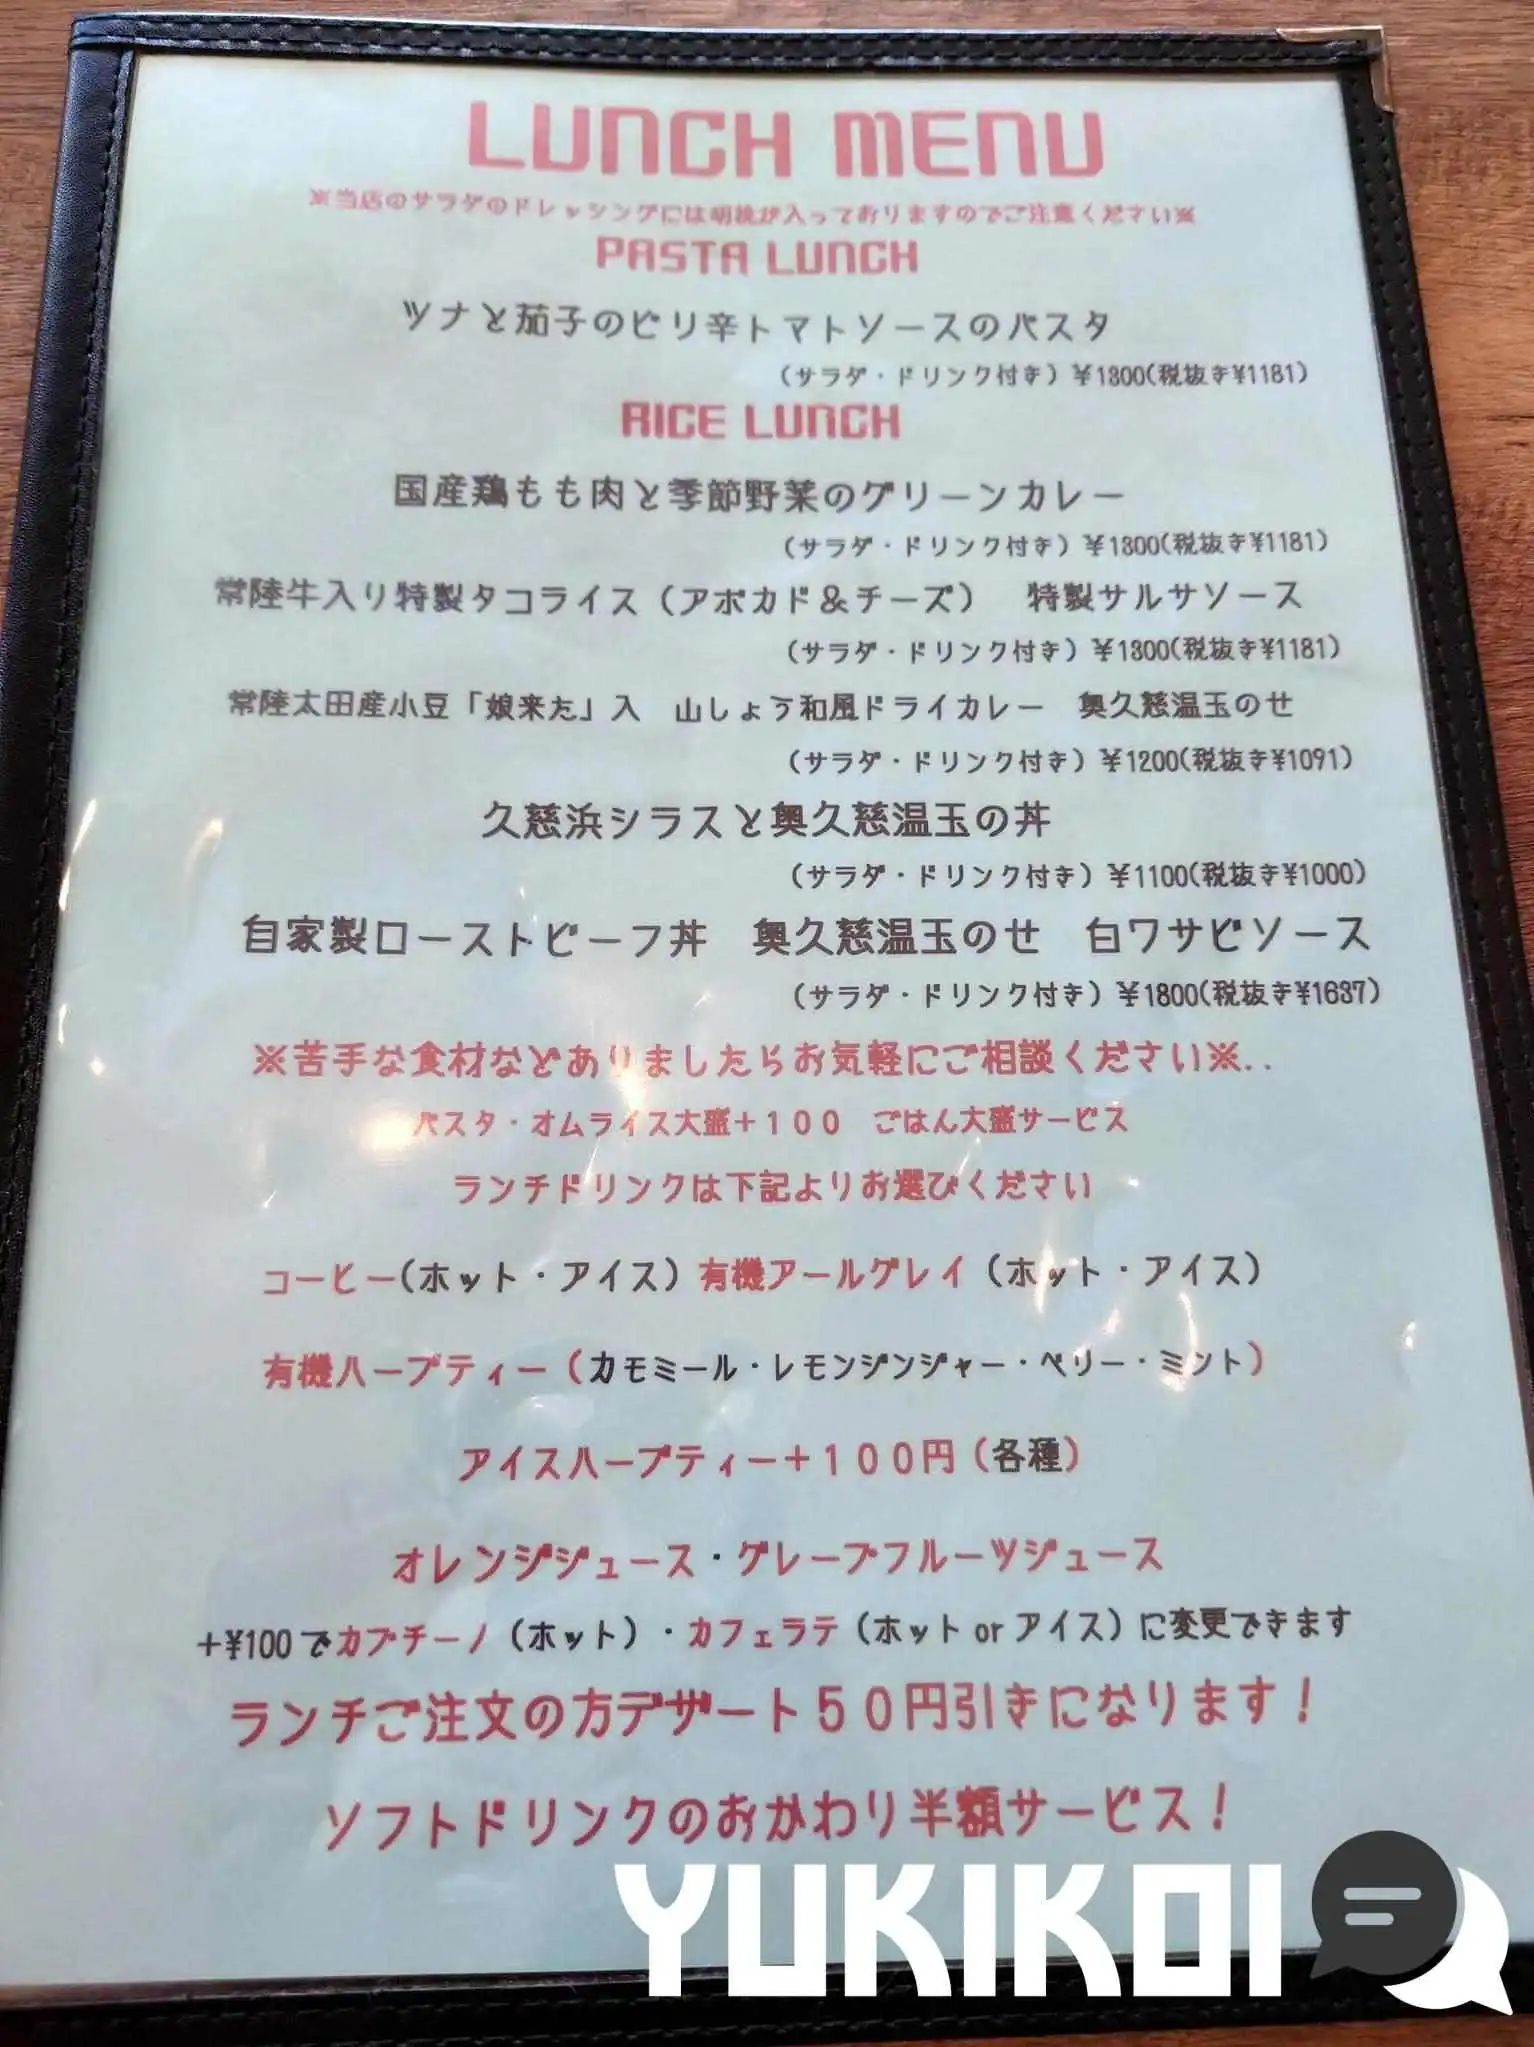 LUNCH MENU
※当店のサラダのドレッシングには胡桃が入っておりますのでご注意ください※
PASTA LUNCH
ツナと茄子のピリ辛トマトソースのパスタ
（サラダ・ドリンク付き）￥1300(税抜き¥1181)
RICE LUNCH
国産鶏もも肉と季節野菜のグリーンカレー
（サラダ・ドリンク付き）￥1300(税抜き¥1181)
常陸牛入り特製タコライス（アボカド＆チーズ）　特製サルサソース
（サラダ・ドリンク付き）￥1300(税抜き¥1181)
常陸太田産小豆「娘来た」入　山しょう和風ドライカレー　奥久慈温玉のせ
（サラダ・ドリンク付き）￥1200(税抜き¥1091)
久慈浜シラスと奥久慈温玉の丼
（サラダ・ドリンク付き）￥1100(税抜き¥1000)
自家製ローストビーフ丼　奥久慈温玉のせ　白ワサビソース
（サラダ・ドリンク付き）￥1800(税抜き¥1637)
※苦手な食材などありましたらお気軽にご相談ください※..
パスタ・オムライス大盛＋１００　ごはん大盛サービス
ランチドリンクは下記よりお選びください
コーヒー(ホット・アイス）有機アールグレイ（ホット・アイス）
有機ハーブティー（カモミール・レモンジンジャー・ベリー・ミント）
アイスハーブティー＋１００円（各種）
オレンジジュース・グレープフルーツジュース
＋¥100でカプチーノ（ホット）・カフェラテ（ホット or アイス）に変更できます
ランチご注文の方デザート５０円引きになります！
ソフトドリンクのおかわり半額サービス！
YUKIKOI